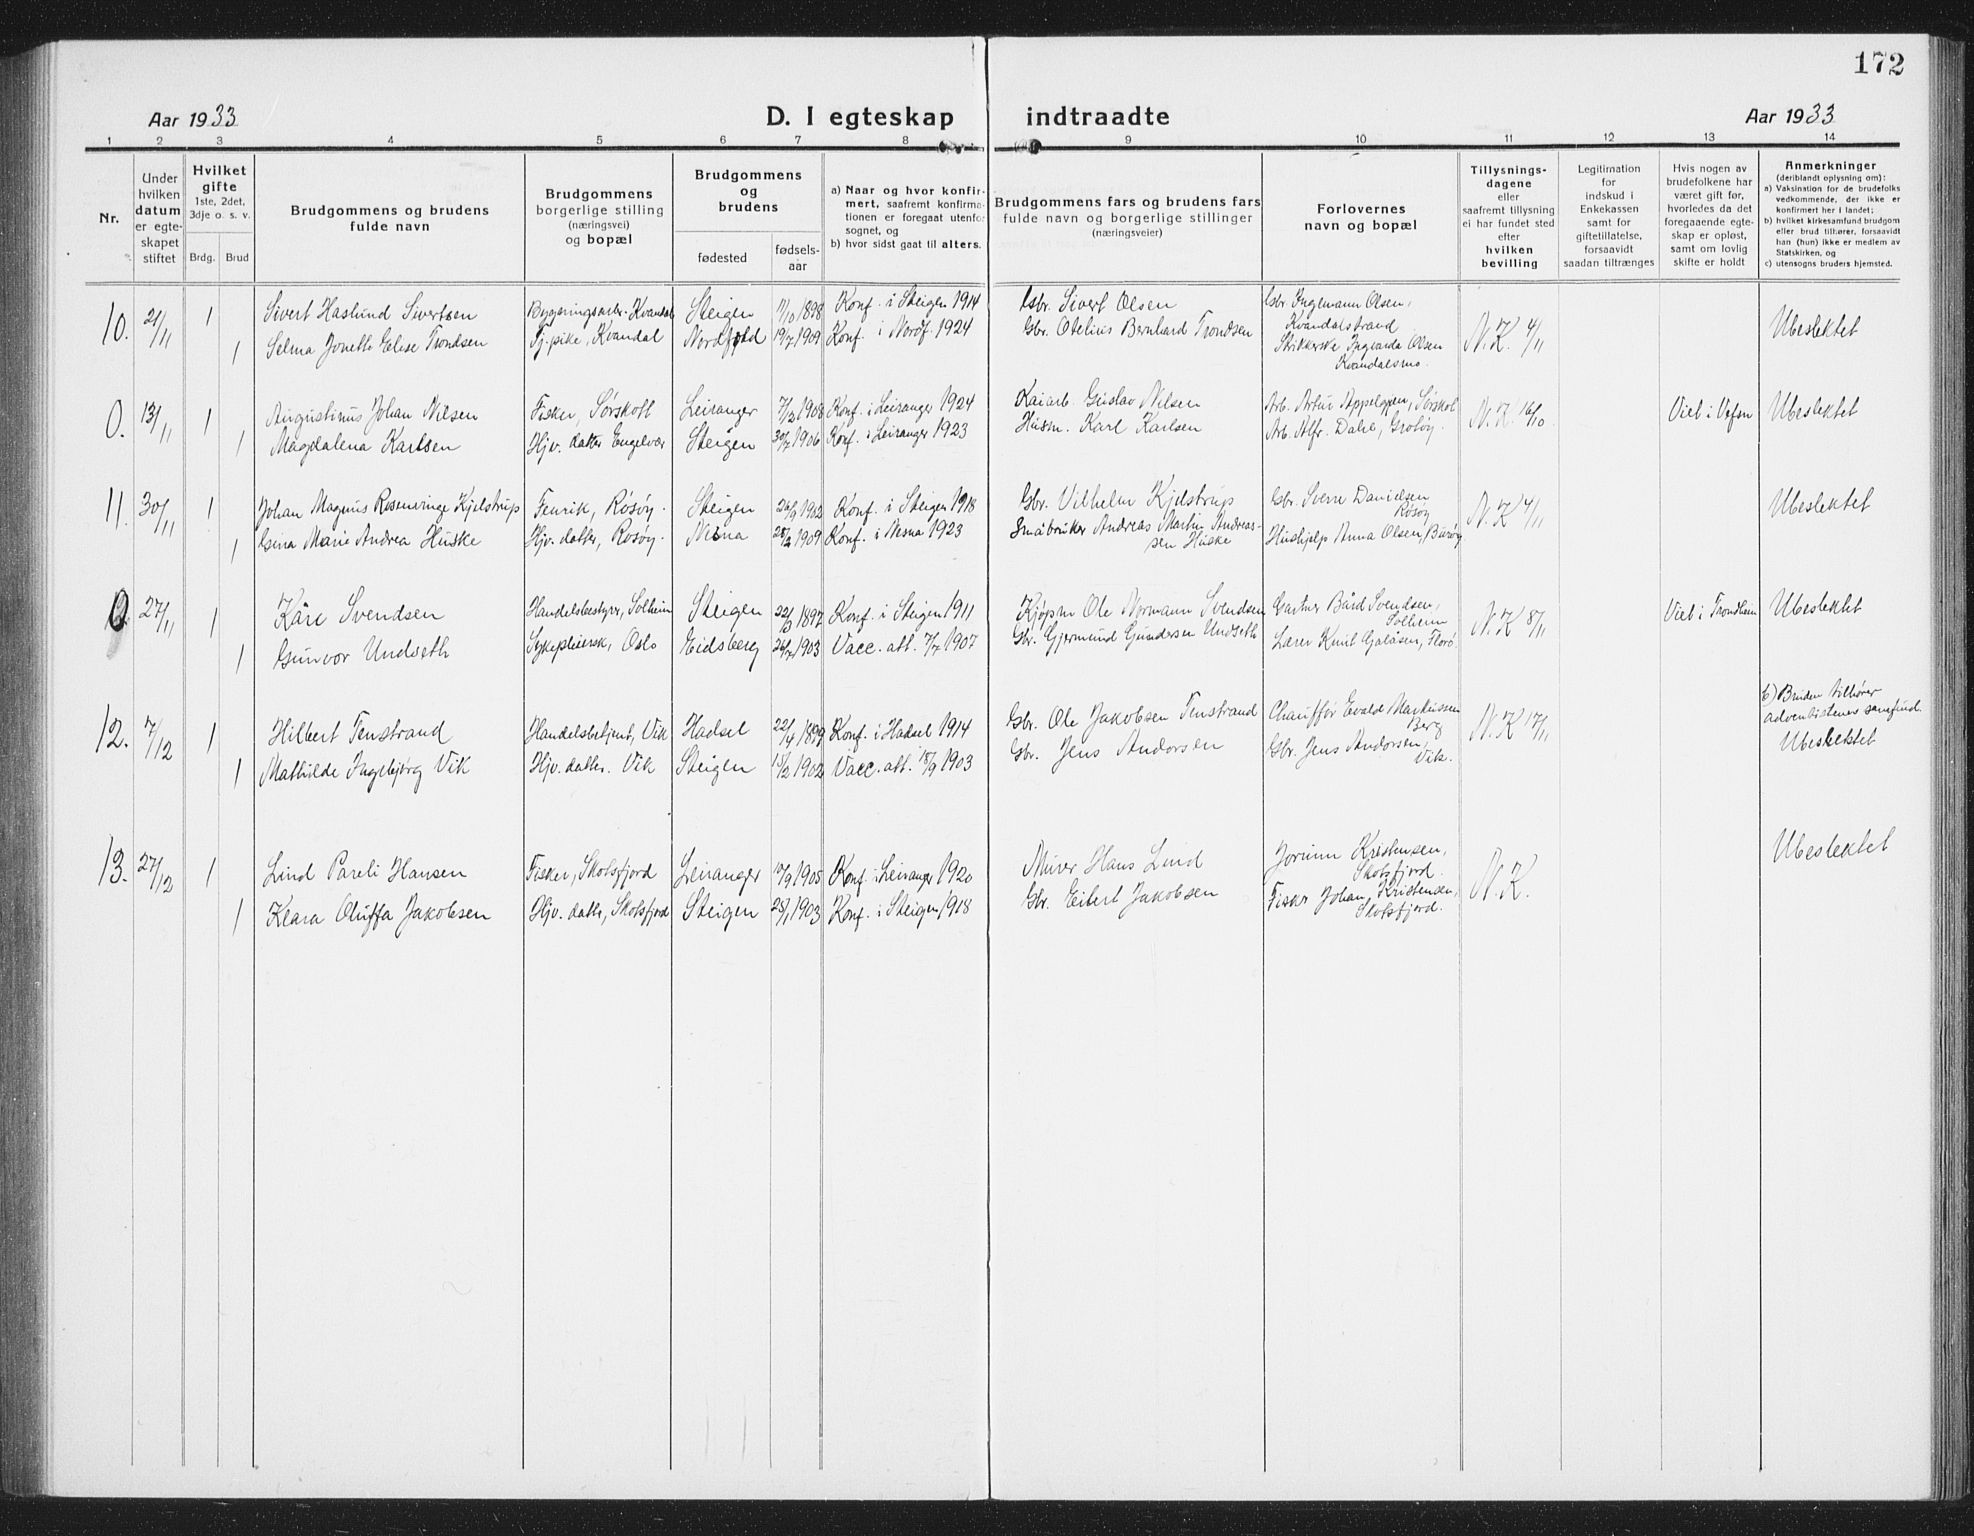 172
Aar 1933
D. I egteskap indtraadte
Aar 1933
1 2 3 4 5 6 7 8 9 10 11 12 13 14
Nr.
Under
hvilken
datum
er egte-
skapet
stiftet
Hvilket
gifte
1ste, 2det,
3dje o. s. v.
Brdg. Brud
Brudgommens og brudens
fulde navn
Brudgommens
borgerlige stilling
(næringsvei)
og bopæl
Brudgommens
og
brudens
fødested
fødsels-
aar
a) Naar og hvor konfir-
mert, saafremt konfirma-
tionen er foregaat utenfor
sognet, og
b) hvor sidst gaat til alters.
Brudgommens fars og brudens fars
fulde navn og borgerlige stillinger
(næringsveier)
Forlovernes
navn og bopæl
Tillysnings-
dagene
eller
saafremt tillysning
ei har fundet sted
efter
hvilken
bevilling
Legitimation
for
indskud i
Enkekassen
samt for
giftetillatelse,
forsaavidt
saadan tiltrænges
Hvis nogen av
brudefolkene har
været gift før,
hvorledes da det
foregaaende egte-
skap er opløst,
samt om lovlig
skifte er holdt
Anmerkninger
(deriblandt oplysning om):
a) Vaksination for de brudefolks
vedkommende, der ikke er
konfirmert her i landet;
b) hvilket kirkesamfund brudgom
eller brud tilhører, forsaavidt
han (hun) ikke er medlem av
Statskirken, og
c) utensogns bruders hjemsted.
10. 21/11 1 Sivert Haslund Sivertsen Bygningsarb. Kvandal Steigen 11/10 1898 Konf. i Steigen 1914 Gbr. Sivert Olsen Gbr. Ingemann Olsen, Kvandalstrand N.K. 4/11 Ubeslektet
1 Selma Jonette Elise Trondsen Tj.pike, Kvandal Nordfold 19/7 1909 Konf. i Nordf. 1924 Gbr. Otelius Bernhard Trondsen Strikkerske Ingvarda Olsen Kvandalsmo.
0. 13/11 1 Augustinus Johan Nilsen Fisker, Sørskott Leiranger 7/2 1908 Konf. i Leiranger 1924 Kaiarb. Gustav Nilsen Arb. Artur Appelgren, Sørskot N.K. 16/10 Viet i Vefsn Ubeslektet
1 Magdalena Karlsen Hjv. datter Engelvær Steigen 30/7 1906 Konf. i Leiranger 1923 Husm. Karl Karlsen Arb. Alfr. Dahl, Grotøy.
11. 30/11 1 Johan Magnus Rosenvinge Kjelstrup Fenrik, Røsøy. Steigen 26/9 1902 Konf. i Steigen 1918 Gbr. Vilhelm Kjelstrup Gbr. Sverre Danielsen Røsøy N.K. 4/11 Ubeslektet
1 Gina Marie Andrea Huske Hjv. datter, Røsøy. Nesna 28/2 1909 Konf. i Nesna 1923 Småbruker Andreas Martin Andreas-
sen Huske Hushjelp Anna Olsen, Burøy
0 27/11 1 Kåre Svendsen Handelsbestyrer, Solheim Steigen 22/3 1897 Konf. i Steigen 1911 Kjøpm Ole Normann Svendsen Gartner Bård Svendsen, Solheim N.K. 8/11 Viet i Trondheim Ubeslektet
1 Gunvor Undseth Sykepleiersk, Oslo Eidsberg 26/7 1903 Vacc. att. 7/7 1907 Gbr. Gjermund Gundersen Undseth Lærer Knut Galåsen, Florø.
12. 7/12 1 Hilbert Tenstrand Handelsbetjent, Vik Hadsel 22/4 1899 Konf. i Hadsel 1914 Gbr. Ole Jakobsen Tenstrand Chauffør Evald Markussen Berg N.K. 17/11 b) Bruden tilhører
adventistenes samfund.
Ubeslektet
1 Mathilde Ingebjørg Vik Hjv. datter. Vik Steigen 15/2 1902 Vacc. att. 18/9 1903 Gbr. Jens Andorsen Gbr. Jens Andorsen, Vik.
13. 27/12 1 Lind Pareli Hansen Fisker, Skotsfjord Leiranger 10/9 1905 Konf. i Leiranger 1920 Murer Hans Lind Jorunn Kristensen, Skotsfjord. N.K. Ubeslektet
1 Klara Oluffa Jakobsen Hjv. datter, Skotsfjord Steigen 28/1 1903 Konf. i Steigen 1918 Gbr. Eilert Jakobsen Fisker Johan Kristensen, Skotsfjord.